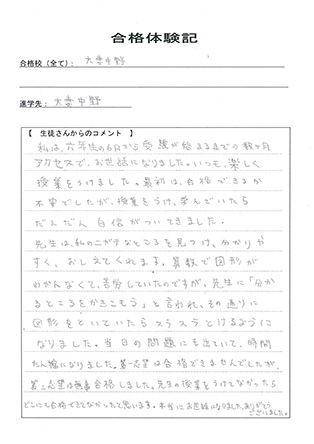 合格体験記
合格校（全て）： 大妻中野
進学先： 大妻中野
【 生徒さんからのコメント 】
私は、六年生の6月から受験が始まるまでの数ヶ月
アクセスで、お世話になりました。いつも、楽しく
授業をうけました。最初は、合格できるか
不安でしたが、授業をうけ、学んでいたら
だんだん自信がついてきました。
先生は、私のニガテなところを見つけ、分かりや
すく、おしえてくれます。算数で図形が
わかんなくて、苦労していたのですが、先生に「分か
るところをかきこもう」と言われ、その通りに
図形をといていたらスラスラとけるように
なりました。当日の問題にも出ていて、時間
たん縮になりました。第一志望は合格できませんでしたが、
第二志望は無事合格しました。先生の授業をうけてなかったら
どこにも合格できてなかったと思います。本当にお世話になりました。ありがとう
ございました。